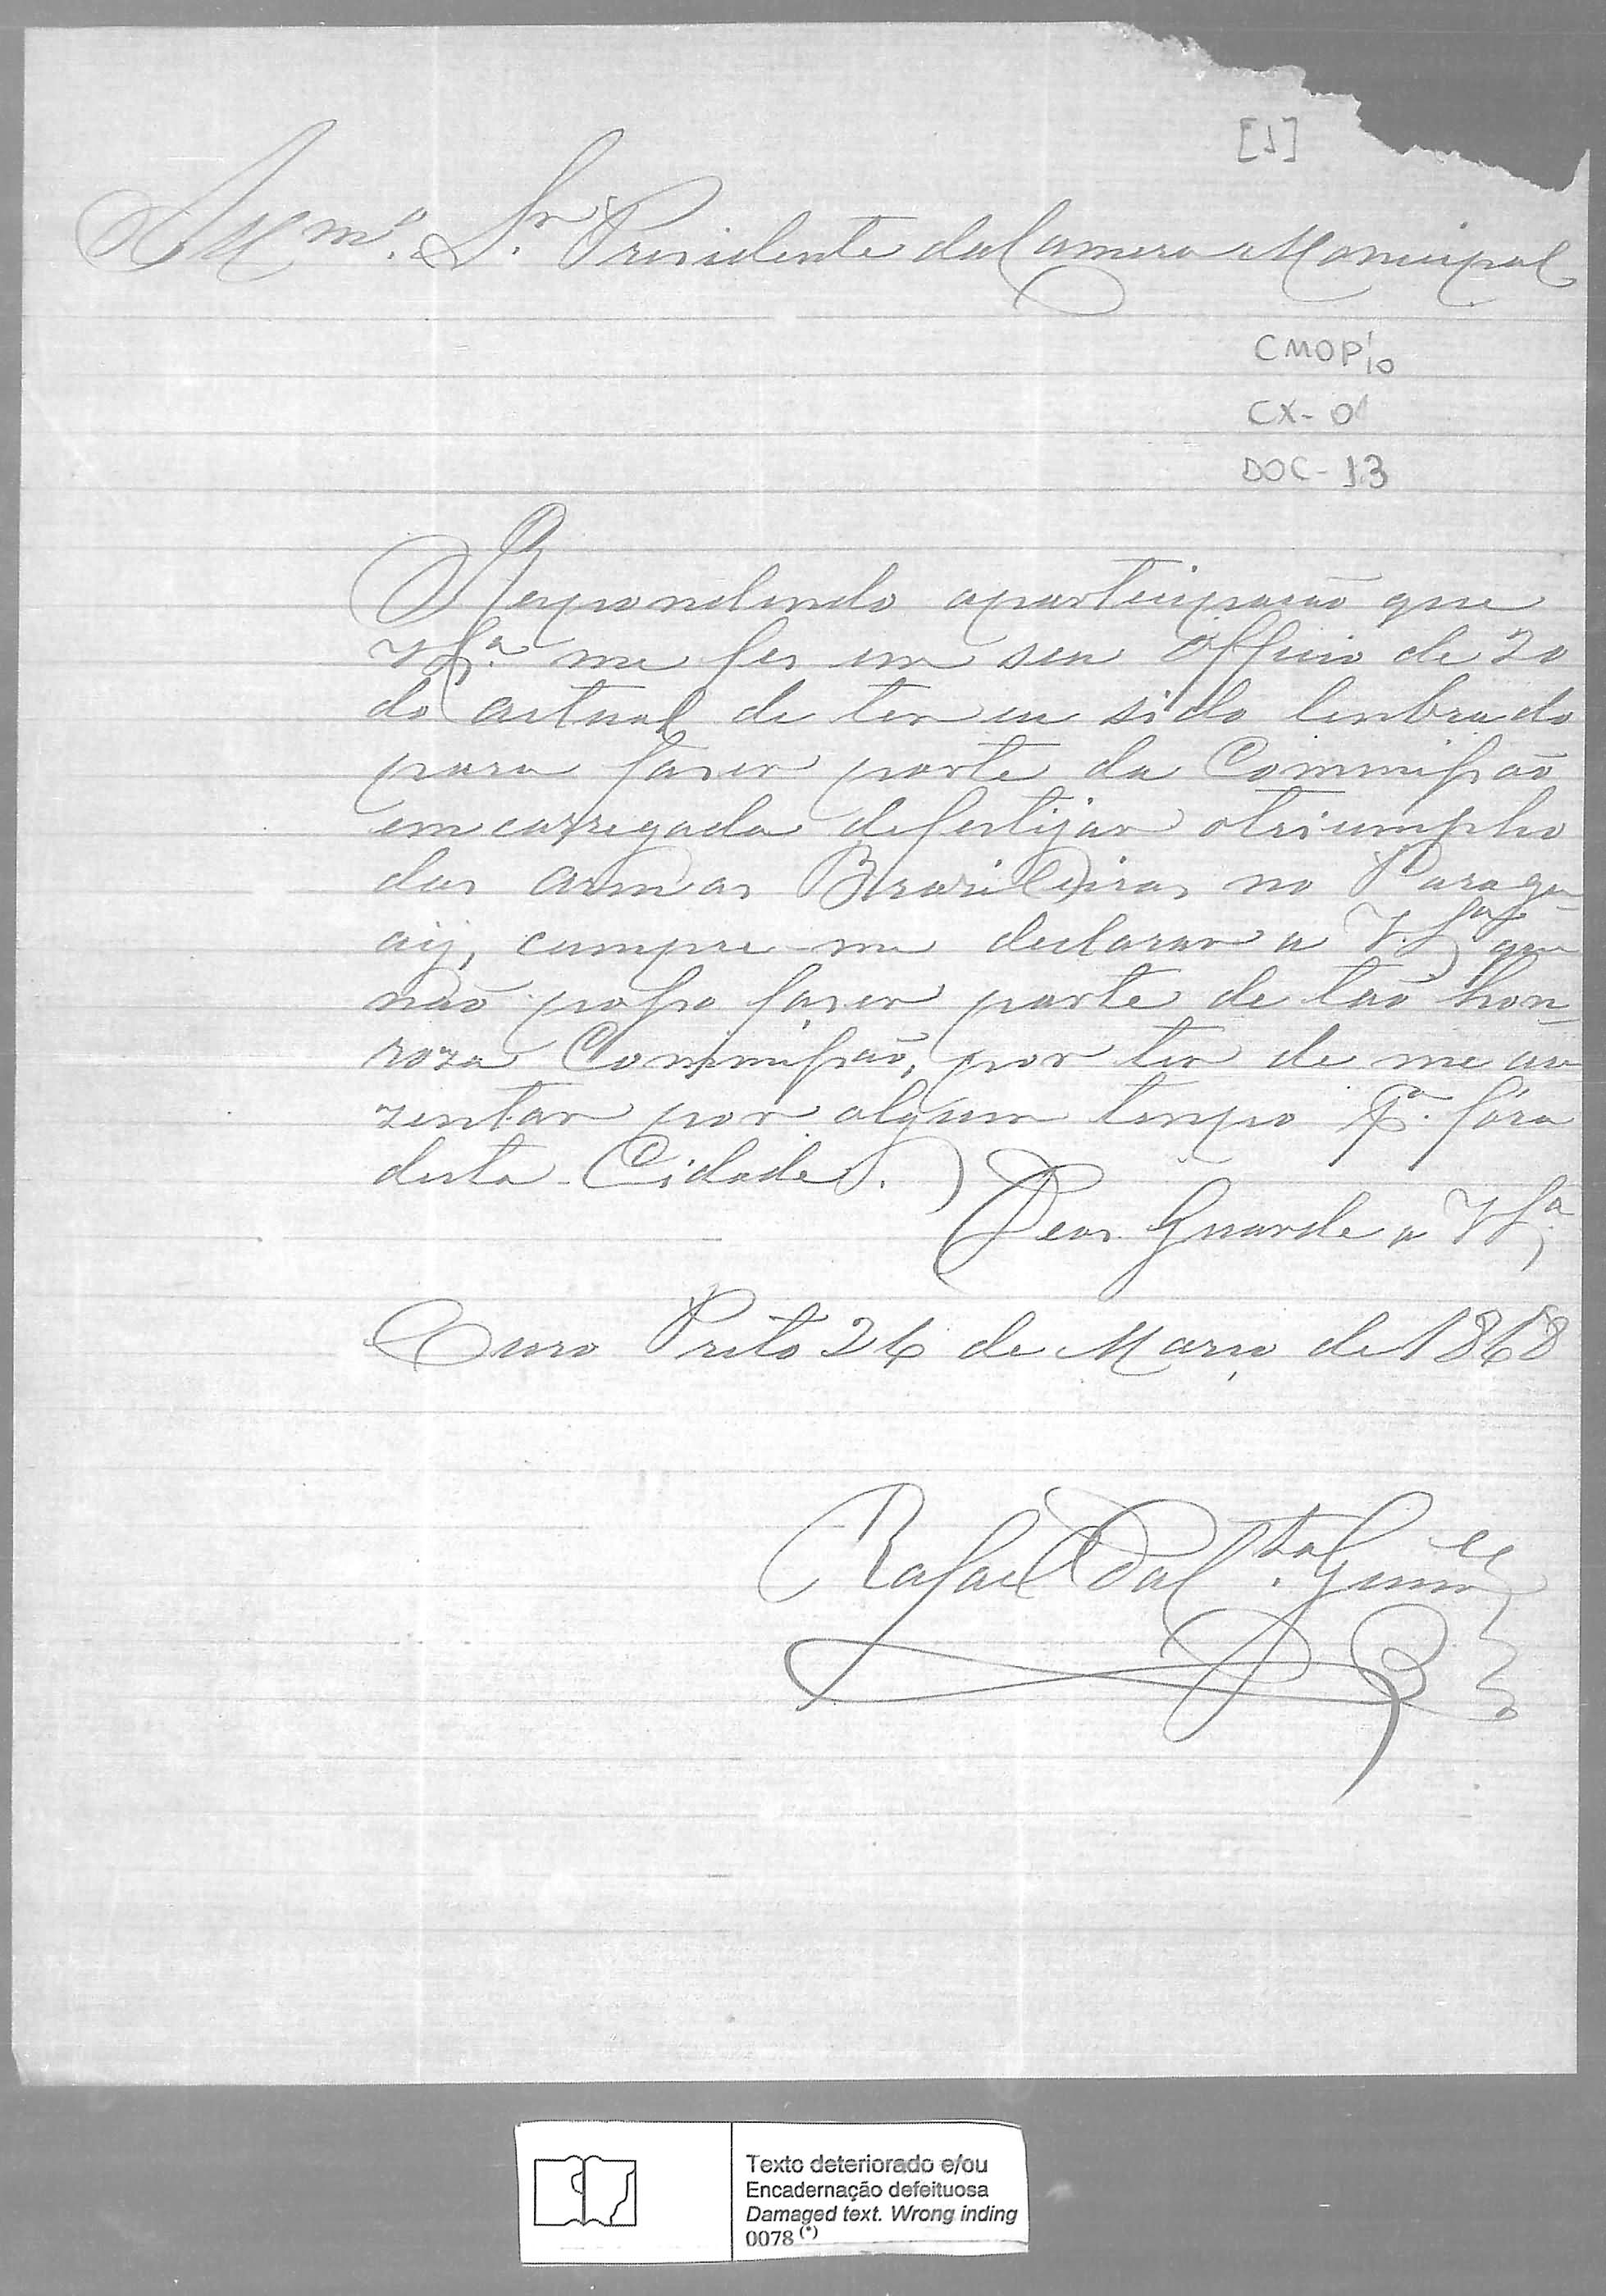 [1]
Illmº. Sr. Presidente da Camera Monicipal
CMOP 1/10
CX-01
DOC-13
Respondendo aparticipação que
VSª. me fes em seu officio de 20
do actual de ter eu sido lenbrado
para faser parte da Commissão
emcarregada defestijar otriumpho
das armas Brazileiras no Paragu-
ay, cumpre-me declarar a V.Sª que
não posso faser parte de tão hon-
roza Commissão, por ter de me au-
zentar por algum tenpo pª. fóra
desta Cidade.
Deos Guarde a VSª
Ouro Preto 26 de Março de 1868
Rafael
Texto deteriorado e/ou
Encadernação defeituosa
Damaged text. Wrong inding
0078 (*)